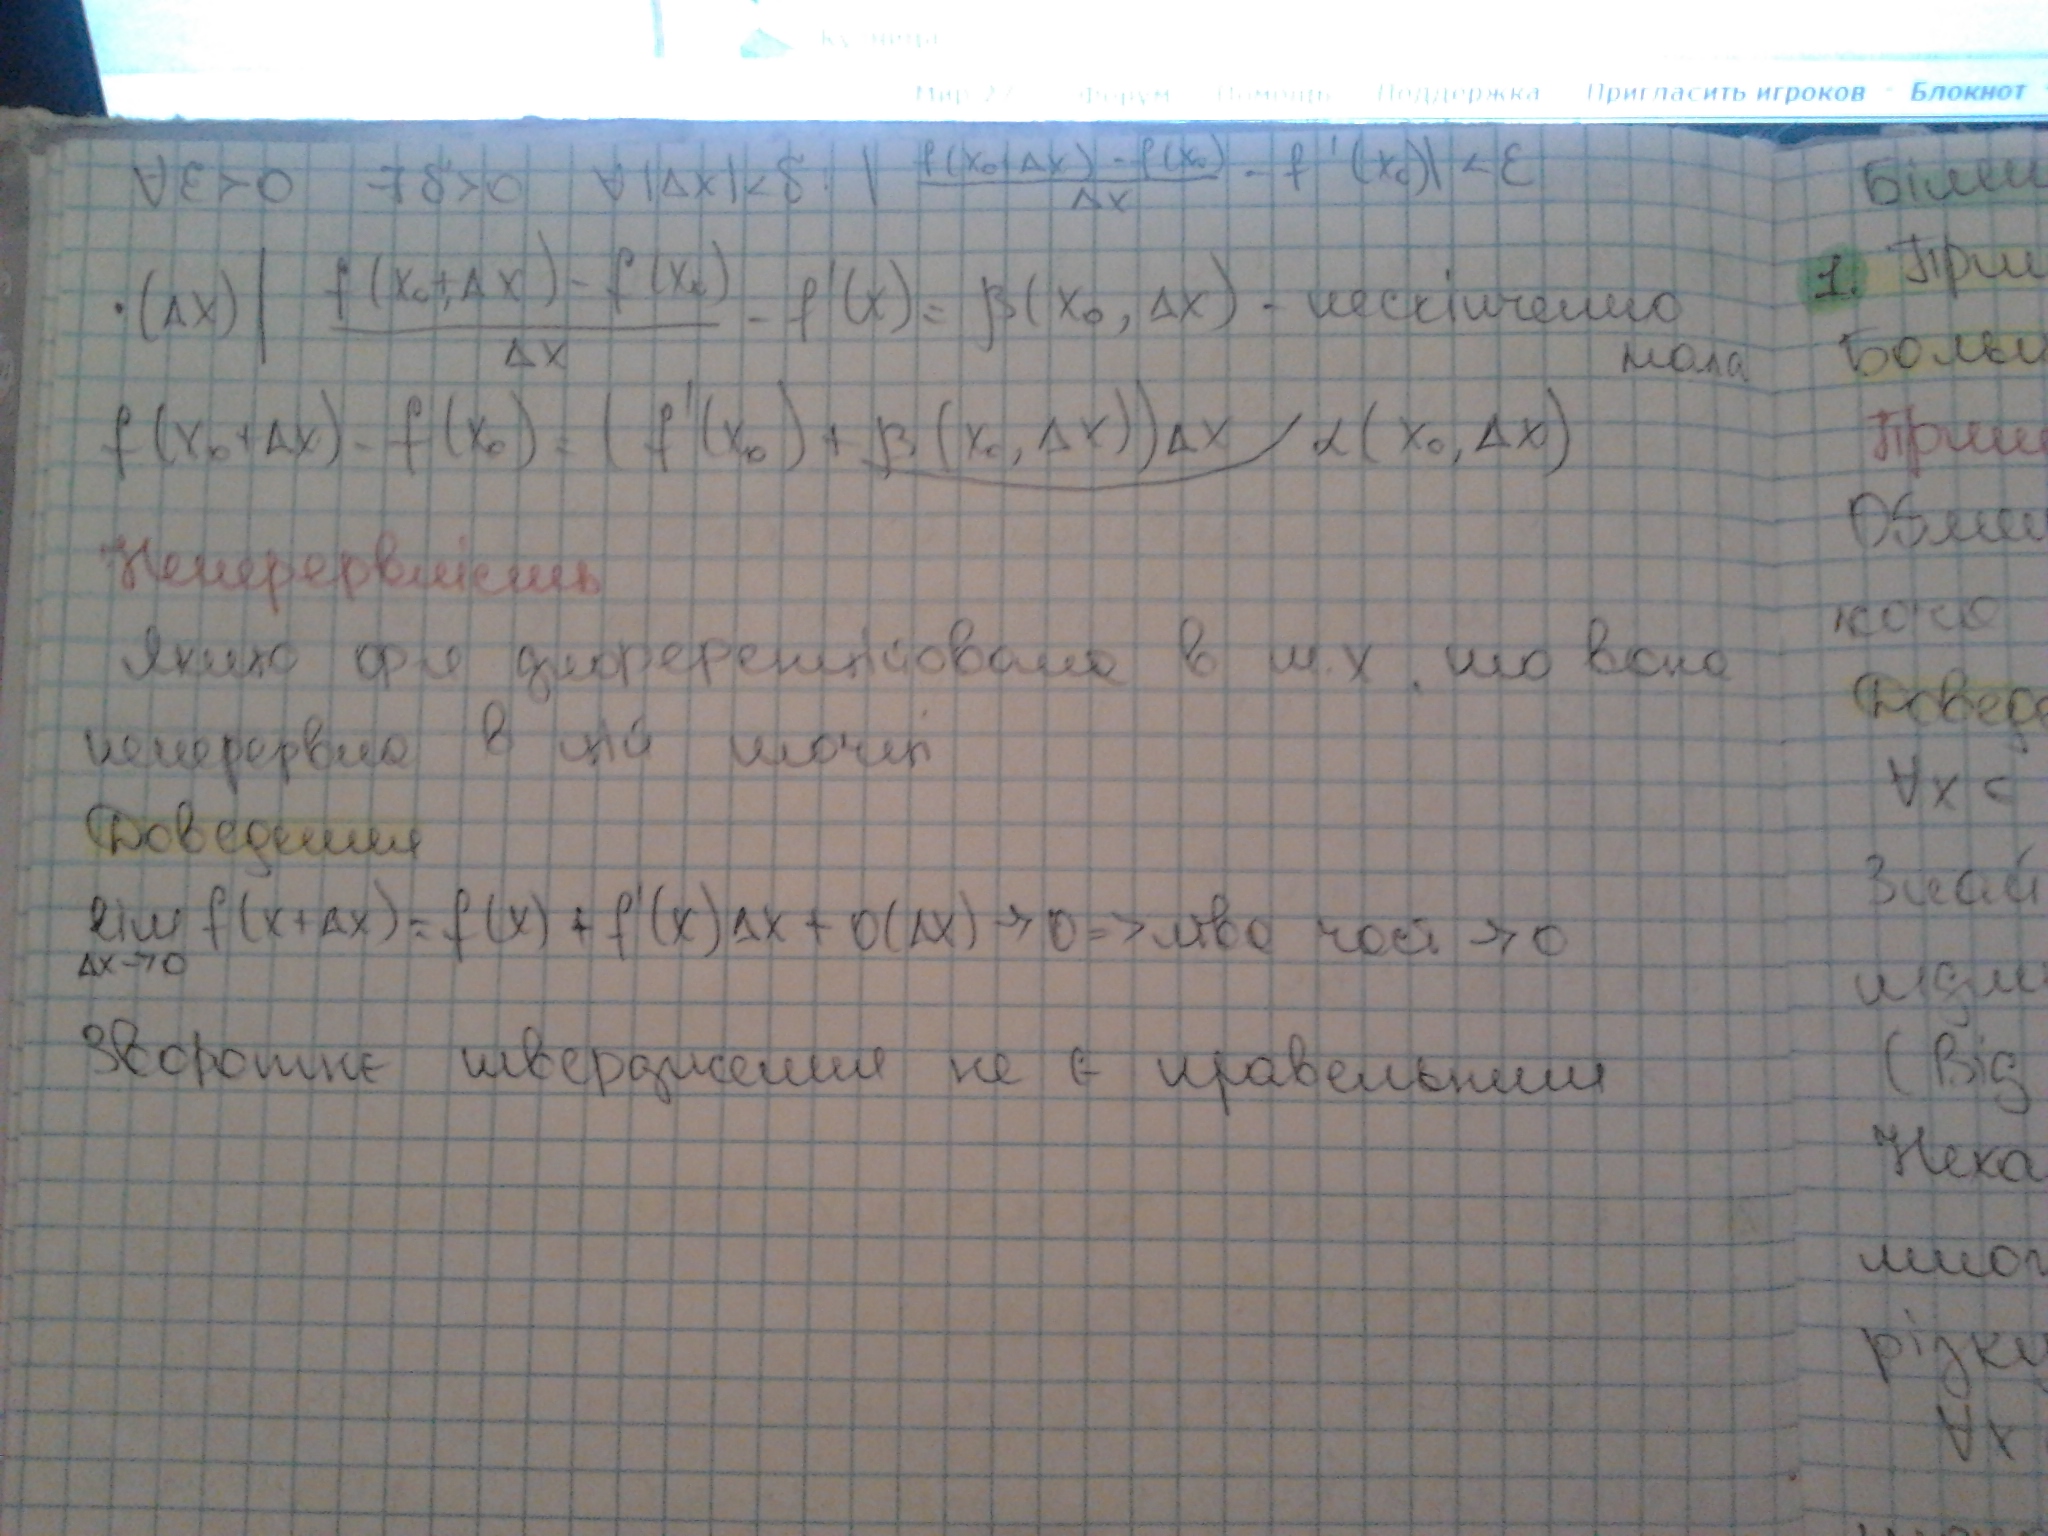 Кузница
Мир 27 Форум Помощь Поддержка Пригласить игроков - Блокнот
∀ε>0 ∃δ>0 ∀|Δx|<δ: | (f(x₀+Δx) - f(x₀))/Δx - f'(x₀)| < ε
·(Δx)| (f(x₀+Δx) - f(x₀))/Δx - f'(x) = β(x₀, Δx) - нескінченно
мала
f(x₀+Δx) - f(x₀) = (f'(x₀) + β(x₀, Δx))Δx α(x₀, Δx)
Неперервність
Якщо ф-я диференційована в т.х, то вона
неперервна в цій точці
Доведення
lim f(x+Δx) = f(x) + f'(x)Δx + o(Δx) → 0 => ліва част → 0
Δx→0
Зворотнє твердження не є правельним
1.
∀x
(Від
∀x